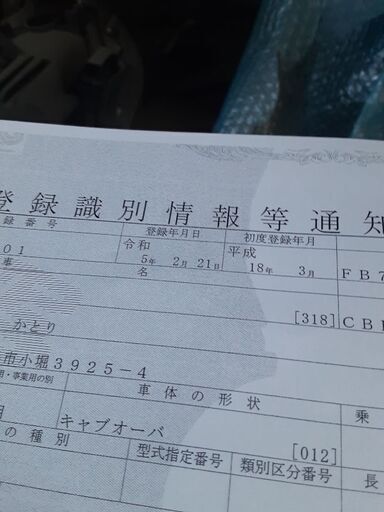 登録識別情報等通知
録番号 登録年月日 初度登録年月
01 令和 平成
5年 2月 21日 18年 3月 FB7
車 名
[318] CB
かとり
市小堀3925-4
用・事業用の別 車体の形状 乗
用 キャブオーバ [012]
の種別 型式指定番号 類別区分番号 長